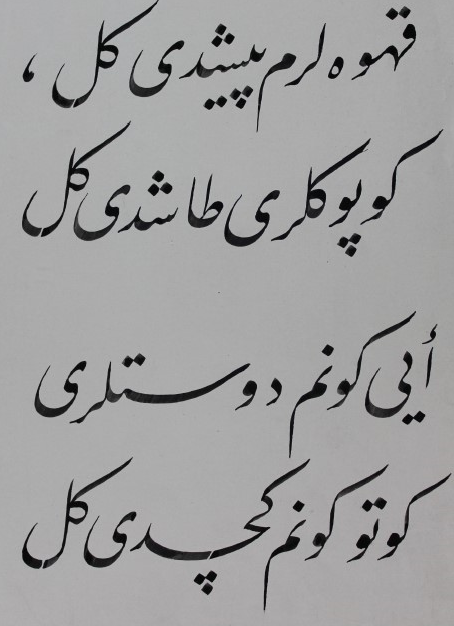 قهوه لرم پیشدی کل ،
کوپوکلری طاشدی کل
أیی کونم دوستلری
کوتو کونم کچدی کل